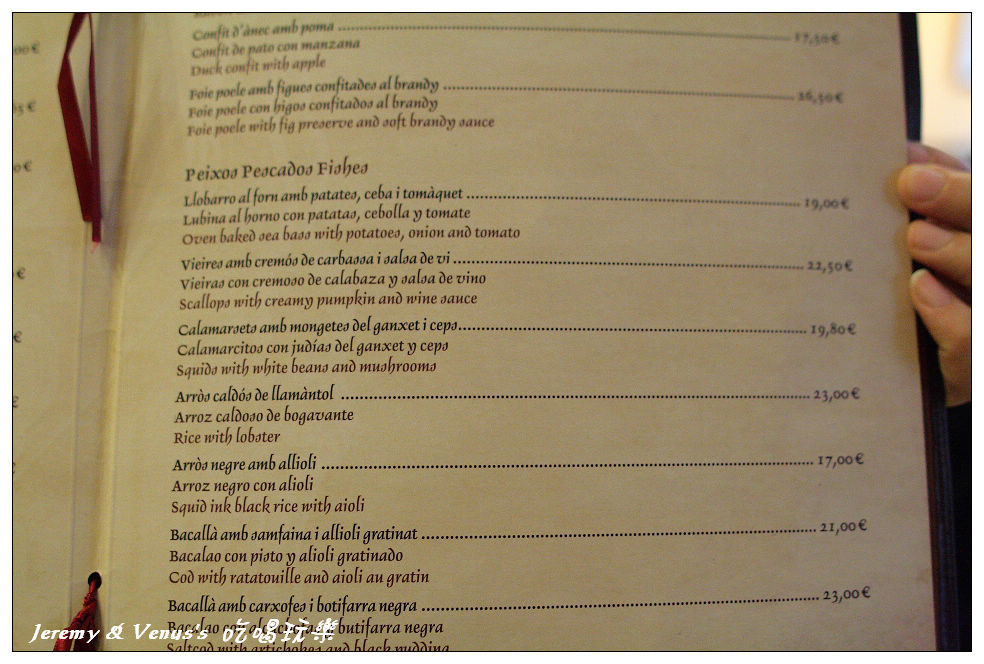 00€
Confit d'ànec amb poma ........ 17,50€
Confit de pato con manzana
Duck confit with apple
Foie poele amb figues confitades al brandy ........ 26,50€
Foie poele con higos confitados al brandy
Foie poele with fig preserve and soft brandy sauce
Peixos Pescados Fishes
Llobarro al forn amb patates, ceba i tomàquet ........ 19,00€
Lubina al horno con patatas, cebolla y tomate
Oven baked sea bass with potatoes, onion and tomato
Vieires amb cremós de carbassa i salsa de vi ........ 22,50€
Vieiras con cremoso de calabaza y salsa de vino
Scallops with creamy pumpkin and wine sauce
Calamarsets amb mongetes del ganxet i ceps ........ 19,80€
Calamarcitos con judías del ganxet y ceps
Squids with white beans and mushrooms
Arròs caldós de llamàntol ........ 23,00€
Arroz caldoso de bogavante
Rice with lobster
Arròs negre amb allioli ........ 17,00€
Arroz negro con alioli
Squid ink black rice with aioli
Bacallà amb samfaina i allioli gratinat ........ 21,00€
Bacalao con pisto y alioli gratinado
Cod with ratatouille and aioli au gratin
Bacallà amb carxofes i botifarra negra ........ 23,00€
Bacalao con butifarra negra
Saltcod with artichokes and black pudding
Jeremy & Venus's 吃喝玩樂